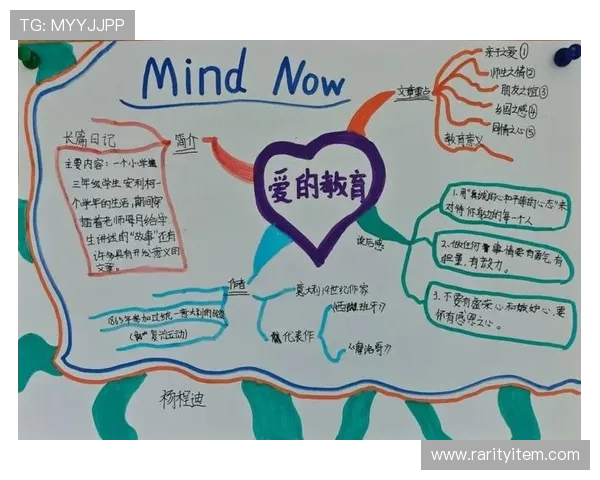 TG: MYYJJPP
Mind Now
爱的教育
简介
长篇日记
主要内容：一个小学
三年级学生安利柯一
个学年的生活，期间穿
插着老师每月给学
生讲述的“故事”还有
许多具有开心意义的
文章。
文章重点
亲子之爱①
师生之情②
朋友之谊③
乡国之感④
同情之心⑤
教育意义
读后感
1.用“真诚的心和平等的心态”来
对待你身边的每一个人
2.做任何事情要有勇气，有
胆量，有毅力。
3.不要有虚荣心和嫉妒心，要
怀有感恩之心。
作者
意大利19世纪作家
代表作
《西班牙》
《摩洛哥》
1865年参加过统一意大利的
复兴运动)
杨程迪
www.rarityitem.com